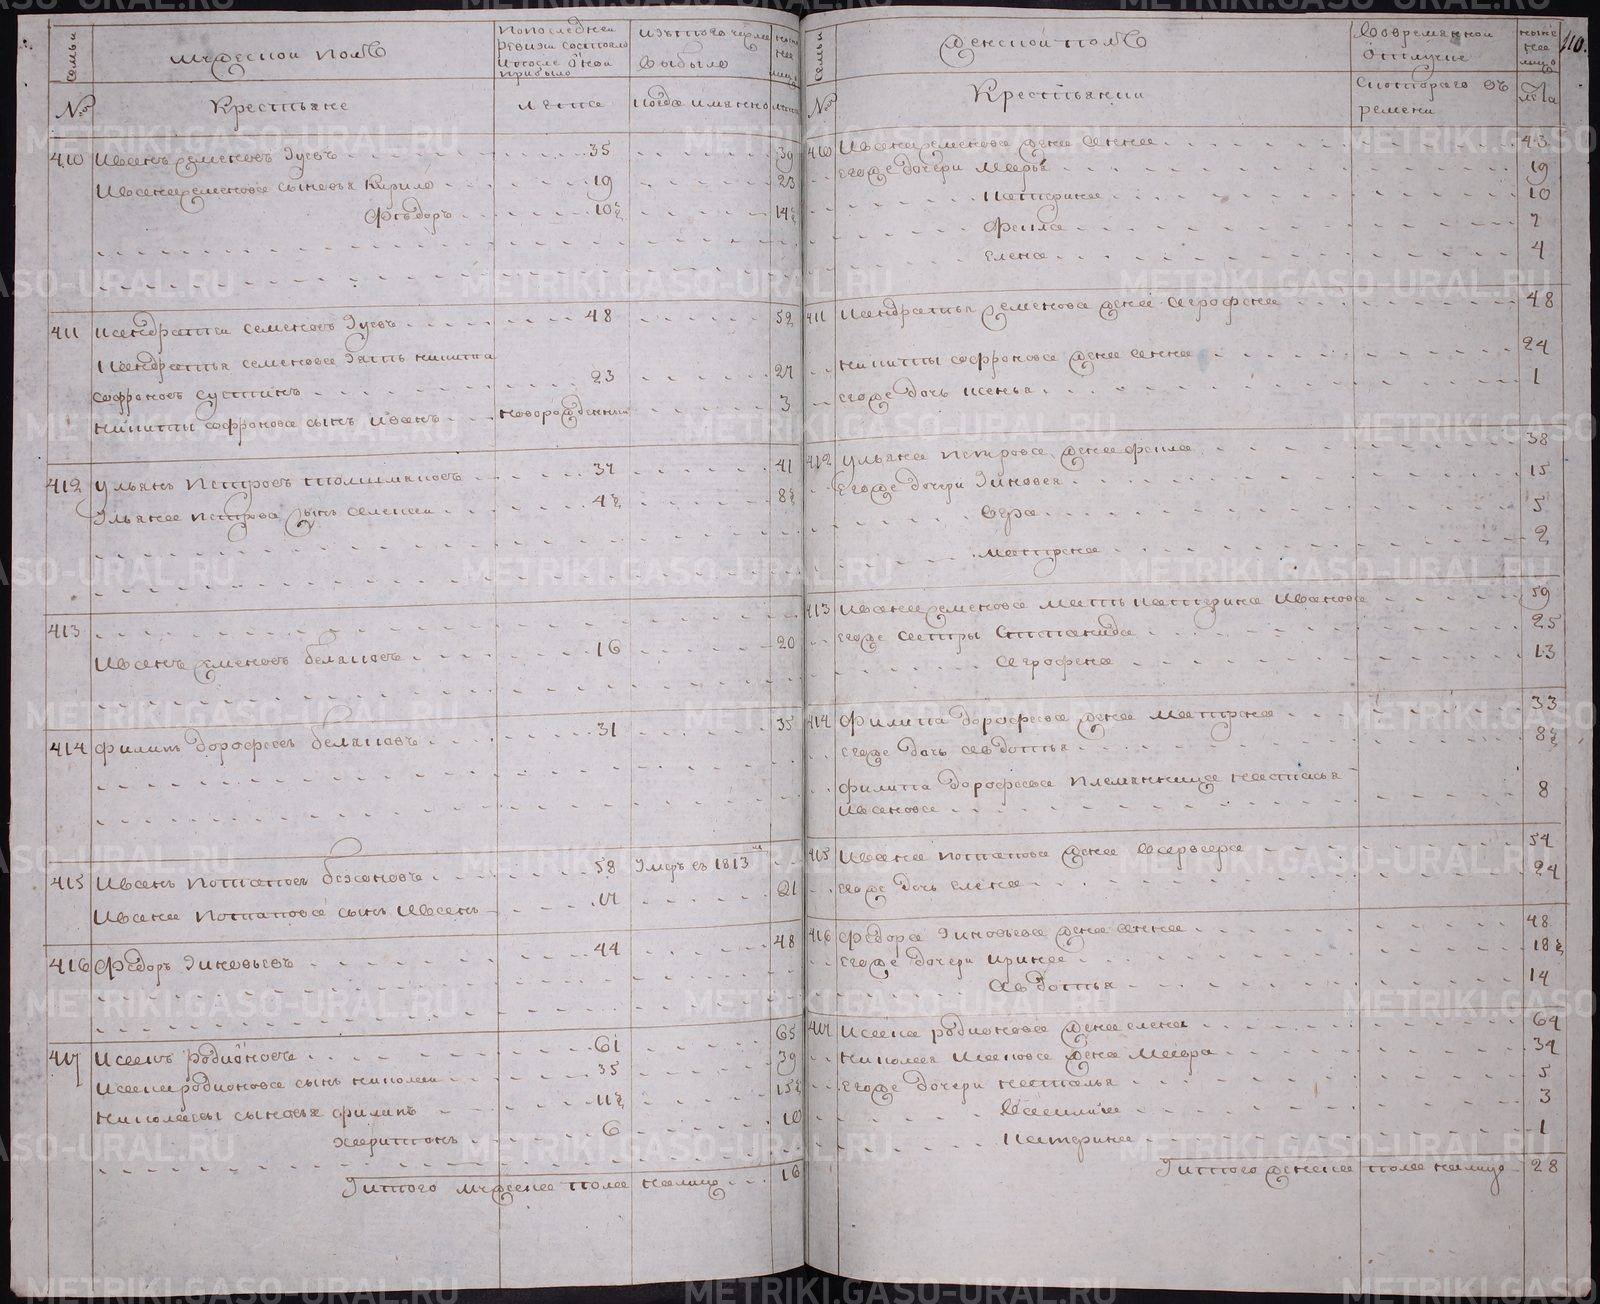 семьи
мужеской полъ
По последней ревизи состояло и после оной прибыло
изътого числа выбыло
ныне налицо
№
Крестьяне
лета
когда имянно
лета
410 Иванъ Семеновъ Зуевъ 35 39
Ивана Семенова сыновья Кирило 19 23
Фёдоръ 10½ 14½
411 Кандратей Семеновъ Зуевъ 48 52
Кандратья Семенова зять Никита
Софроновъ Сустинъ 23 27
Никиты Софронова сынъ Иванъ новорожденный 3
412 Ульянъ Петровъ Толшмаковъ 37 41
Ульяна Петрова сынъ Алексей 4½ 8½
413
Иванъ Семеновъ Белаковъ 16 20
414 Филипъ Дорофеевъ Белаковъ 31 35
415 Иванъ Потаповъ Бажановъ 58 Умръ въ 1813м
Ивана Потапова сынъ Иванъ 17 21
416 Фёдоръ Зиновьевъ 44 48
417 Исакъ Родионовъ 61 65
Исака Родионова сынъ Николай 35 39
Николаевы сыновья Филипъ 11½ 15½
Харитонъ 6 10
Итого мужеска пола налицо 16
семьи
женской полъ
Вовременной отлучке
ныне налицо
110.
№
Крестьянки
С котораго времени
лета
410 Ивана Семенова жена Анна 43
Егоже дочери Марья 19
Катерина 10
Фекла 7
Елена 4
411 Кандратья Семенова жена Агрофена 48
Никиты Софронова жена Анна 24
Егоже дочь Ксенья 1
412 Ульяна Петрова жена Фекла 38
Егоже дочери Зиновея 15
Вера 5
Матрена 2
413 Ивана Семенова мать Катерина Иванова 59
Егоже сестры Степанида 25
Агрофена 13
414 Филипа Дорофеева жена Матрена 33
Егоже дочь Авдотья 8½
Филипа Дорофеева племянница Настасья
Иванова 8
415 Ивана Потапова жена Варвара 54
Егоже дочь Елена 24
416 Фёдора Зиновьева жена Анна 48
Егоже дочери Ирина 18½
Авдотья 14
417 Исака Родионова жена Елена 64
Николая Исакова жена Мавра 34
Егоже дочери Наталья 5
Василиса 3
Катерина 1
Итого женска пола налицо 28
METRIKI.GASO-URAL.RU